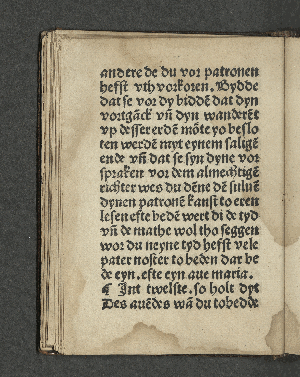 andere de du vor patronen
hefft vth vorkoren. Bydde
dat se vor dy biddē dat dyn
vortgāck vñ dyn wanderēt
vp desser erdē mote yo beslo
ten werdē myt eynem saligē
ende vñ dat se syn dyne vor
spraken vor dem almechtigē
richter wes du dēne dē suluē
dynen patronē kanst to eren
lesen efte bedē wert di de tyd
vñ de mathe wol tho seggen
wor du neyne tyd hefst vele
pater noster to beden dar be
de eyn. efte eyn aue maria.
¶ Int twelfte. so holt dyt
Des auēdes wā du tobedde